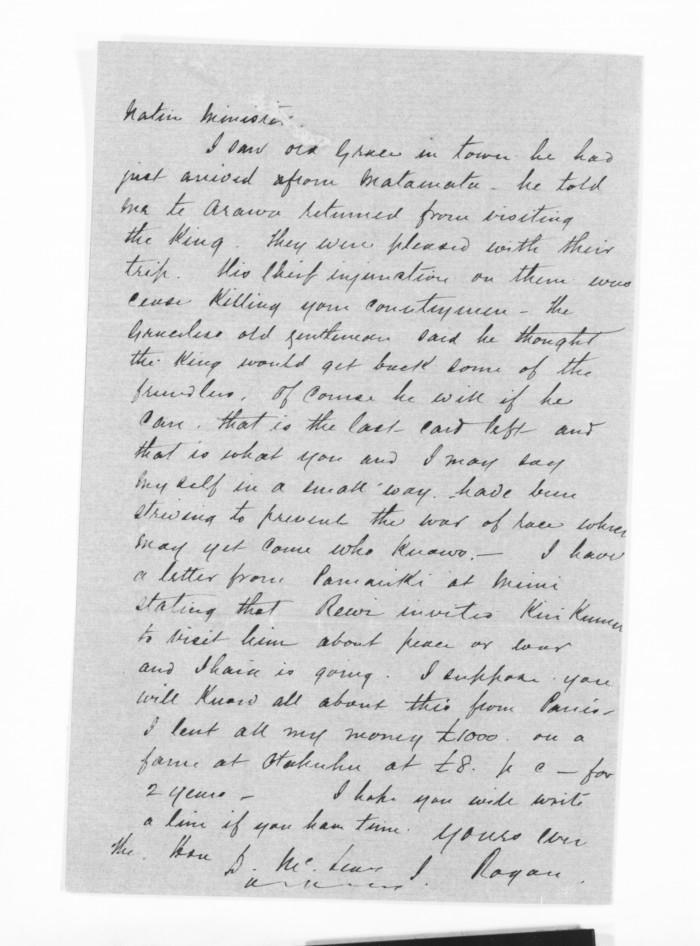 Native Minister.
I saw old Grace in town he had
just arrived from Matamata - he told
me te Arawa returned from visiting
the King. They were pleased with their
trip. His Chief injunction on them was
cease Killing your countrymen - The
Graceless old gentleman said he thought
the King would get back some of the
friendlies. Of course he will if he
can. that is the last card left and
that is what you and I may say
myself in a small way. have been
striving to prevent the war of race which
may yet come who knows. - I have
a letter from at Mimi
stating that Rewi invites
to visit him about peace or war
and Ihaia is going. I suppose you
will Know all about this from Parris -
I lent all my money £1000. on a
farm at Otahuhu at £8. p c - for
2 years - I hope you will write
a line if you have time. yours ever
The. Hon D. McLean J. Rogan.